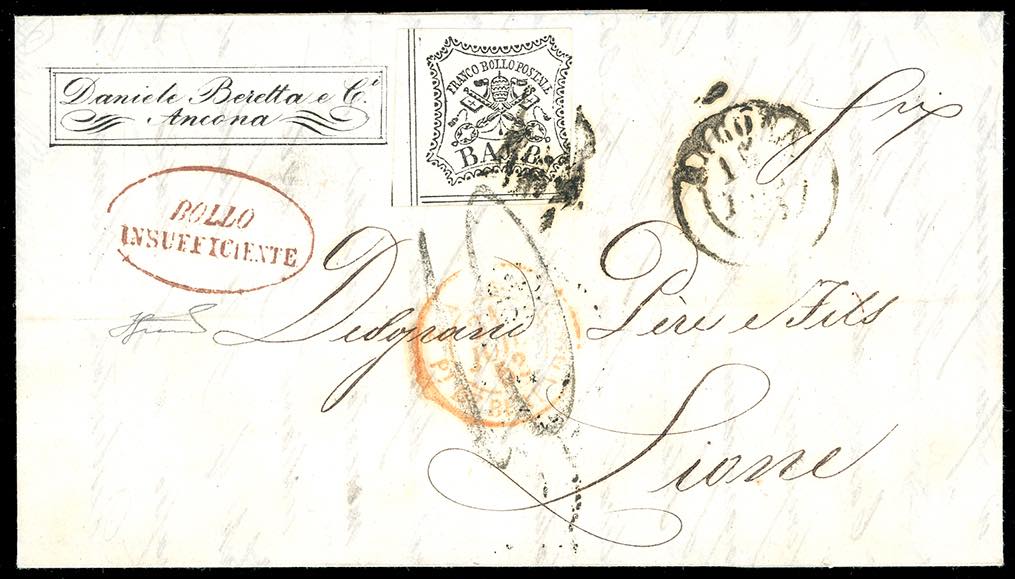 Daniele Beretta e C.i
Ancona
FRANCO BOLLO POSTALE
BAJ 8
BOLLO
INSUFFICIENTE
Desgrand Père e Fils
Lione